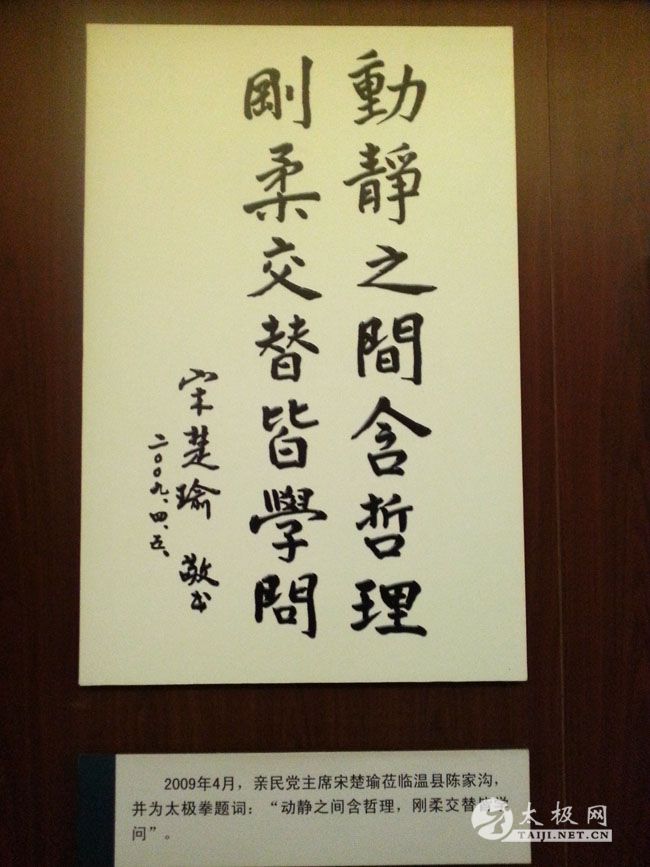 動靜之間含哲理
剛柔交替皆學問
宋楚瑜 敬书
二〇〇九、四、五、
2009年4月，亲民党主席宋楚瑜莅临温县陈家沟，
并为太极拳题词：“动静之间含哲理，刚柔交替皆学
问”。
太极网
TAIJI.NET.CN